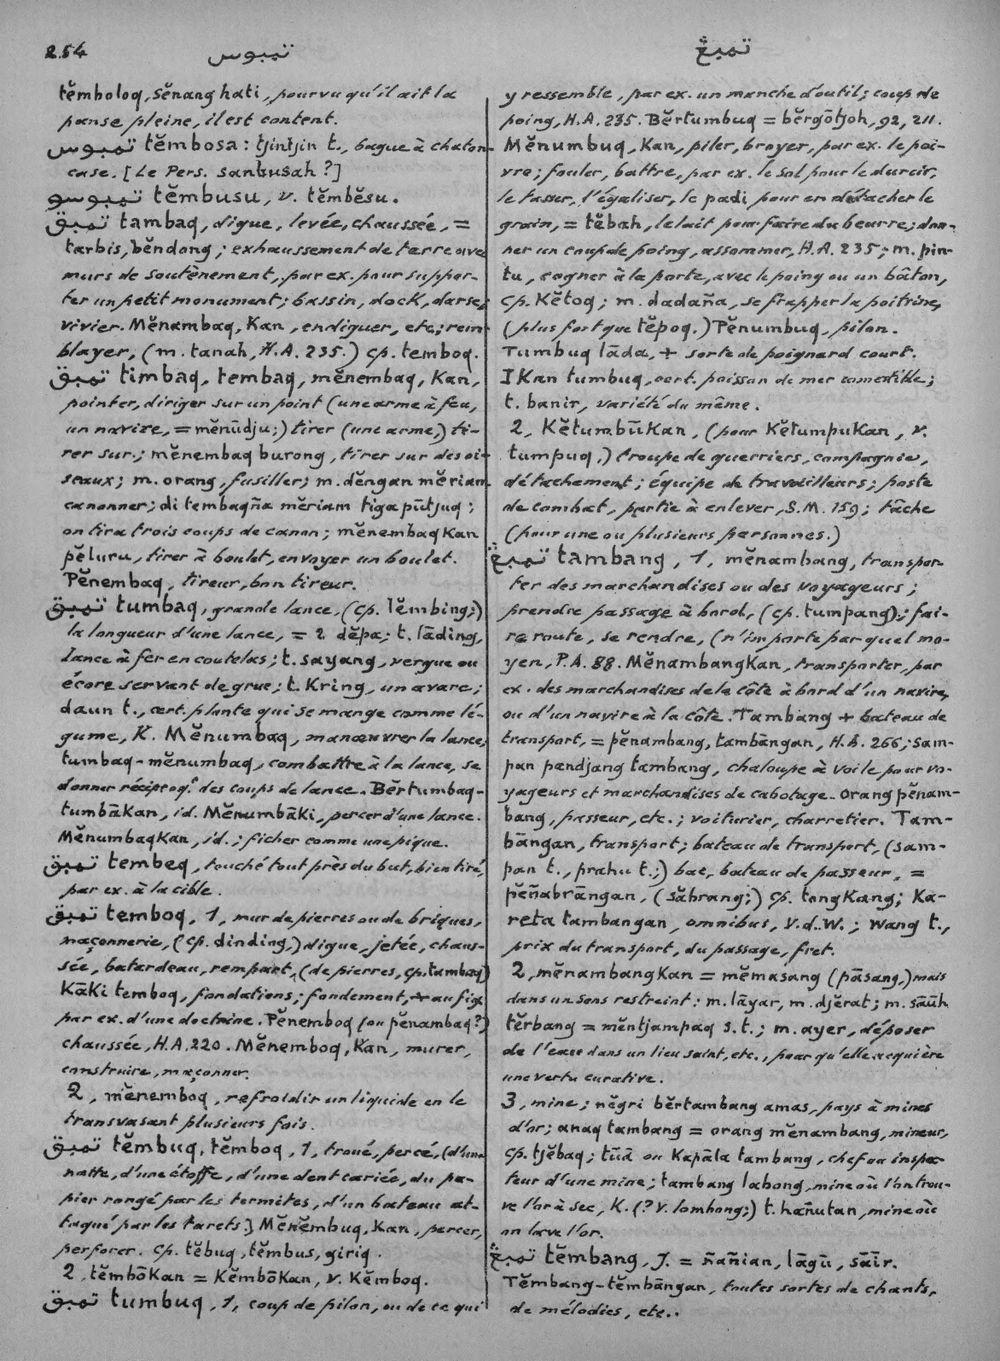 254
تمبوس
تمبڠ
tĕmboloq, sĕnang hati, pourvu qu'il ait la
panse pleine, il est content.
تمبوس tĕmbosa: tjintjin t., bague à chaton-
case. [Le Pers. sanbusah ?]
تمبوسو tĕmbusu, v. tĕmbĕsu.
تمبق tambaq, digue, levée, chaussée, =
tarbis, bĕndong; exhaussement de terre avec
murs de soutènement, par ex. pour suppor-
ter un petit monument; bassin, dock, darse,
vivier. Mĕnambaq, Kan, endiguer, etc.; rem-
blayer, (m. tanah, H.A. 235.) cp. temboq.
تمبق timbaq, tembaq, mĕnembaq, Kan,
pointer, diriger sur un point (une arme à feu,
un navire, = mĕnūdju;) tirer (une arme,) ti-
rer sur.; mĕnembaq burong, tirer sur des oi-
seaux; m. orang, fusiller; m. dĕngan mĕriam
canonner; di tembaqña mĕriam tiga pūtjuq;
on tira trois coups de canon; mĕnembaq Kan
pĕluru, tirer à boulet, envoyer un boulet.
Pĕnembaq, tireur, bon tireur.
تمبق tumbaq, grande lance, (cp. lĕmbing;)
la longueur d'une lance, = 2 dĕpa; t. lāding,
lance à fer en coutelas; t. sayang, vergue ou
écore servant de grue; t. Kring, un avare;
daun t., cert. plante qui se mange comme lé-
gume, K. Mĕnumbaq, manœuvrer la lance;
tumbaq-mĕnumbaq, combattre à la lance, se
donner réciproq.t des coups de lance. Bĕrtumbaq-
tumbākan, id. Mĕnumbāki, percer d'une lance.
Mĕnumbaqkan, id.; ficher comme une pique.
تمبق tembeq, touché tout près du but, bien tiré,
par ex. à la cible.
تمبق temboq, 1, mur de pierres ou de briques,
maçonnerie, (cp. dinding,) digue, jetée, chaus-
sée, batardeau, rempart, (de pierres, cp. tambaq)
Kāki temboq, fondations; fondement, + au fig.
par ex. d'une doctrine. Pĕnemboq (ou pĕnambaq?)
chaussée, H.A. 220. Mĕnemboq, Kan, murer,
construire, maçonner.
2, mĕnemboq, refroidir un liquide en le
transvasant plusieurs fois.
تمبق tĕmbuq, tĕmboq, 1, troué, percé, (d'une
natte, d'une étoffe, d'une dent cariée, du pa-
pier rongé par les termites, d'un bateau at-
taqué par les tarets.) Mĕnĕmbuq, Kan, percer,
perforer. cp. tĕbuq, tĕmbus, giriq.
2, tĕmbōKan = KĕmbōKan, v. Kĕmboq.
تمبق tumbuq, 1, coup de pilon, ou de ce qui
y ressemble, par ex. un manche d'outil; coup de
poing, H.A. 235. Bĕrtumbuq = bĕrgōtjoh, 92, 211.
Mĕnumbuq, Kan, piler, broyer, par ex. le poi-
vre; fouler, battre, par ex. le sol pour le durcir,
le tasser, l'égaliser, le padi pour en détacher le
grain, = tĕbah, le lait pour faire du beurre; don-
ner un coup de poing, assommer, H.A. 235; m. pin-
tu, cogner à la porte, avec le poing ou un bâton,
cp. Kĕtoq; m. dadaña, se frapper la poitrine,
(plus fort que tĕpoq.) Pĕnumbuq, pilon.
Tumbuq lāda, + sorte de poignard court.
IKan tumbuq, cert. poisson de mer comestible;
t. banir, variété du même.
2, KĕtumbūKan, (pour KĕtumpuKan, v.
tumpuq,) troupe de guerriers, compagnie,
détachement; équipe de travailleurs; poste
de combat, partie à enlever, S.M. 159; tâche
(pour une ou plusieurs personnes.)
تمبڠ tambang, 1, mĕnambang, transpor-
ter des marchandises ou des voyageurs;
prendre passage à bord, (cp. tumpang); fai-
re route, se rendre, (n'importe par quel mo-
yen, P.A. 88. MĕnambangKan, transporter, par
ex. des marchandises de la côte à bord d'un navire,
ou d'un navire à la côte. Tambang + bateau de
transport, = pĕnambang, tambāngan, H.A. 266; sam-
pan pandjang tambang, chaloupe à voile pour vo-
yageurs et marchandises de cabotage. Orang pĕnam-
bang, passeur, etc.; voiturier, charretier. Tam-
bāngan, transport; bateau de transport, (sam-
pan t., prahu t.;) bac, bateau de passeur, =
pĕñabrāngan, (sābrang;) cp. tongKang; Ka-
reta tambangan, omnibus, V.d.W.; wang t.,
prix du transport, du passage, fret.
2, mĕnambangKan = mĕmasang (pāsang,) mais
dans un sens restreint: m. lāyar, m. djĕrat; m. sāūh
tĕrbang = mĕntjampaq s. t.; m. ayer, déposer
de l'eau dans un lieu saint, etc., pour qu'elle acquière
une vertu curative.
3, mine; nĕgri bĕrtambang amas, pays à mines
d'or; anaq tambang = orang mĕnambang, mineur,
cp. tjĕbaq; tūā ou Kapāla tambang, chef ou inspec-
teur d'une mine; tambang labong, mine où l'on trou-
ve l'or à sec, K. (? v. lombong;) t. hañutan, mine où
on lave l'or.
تمبڠ tĕmbang, J. = ñañian, lāgū, sāīr.
Tĕmbang-tĕmbāngan, toutes sortes de chants,
de mélodies, etc..